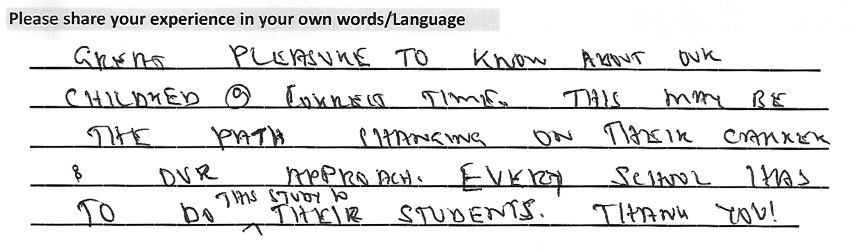 Please share your experience in your own words/Language
GREAT PLEASURE TO KNOW ABOUT OUR
CHILDRED @ CORRECT TIME. THIS MAY BE
THE PATH CHANGING ON THEIR CARRER
& OUR APPROACH. EVERY SCHOOL HAS
TO DO THIS STUDY to THEIR STUDENTS. THANK YOU!